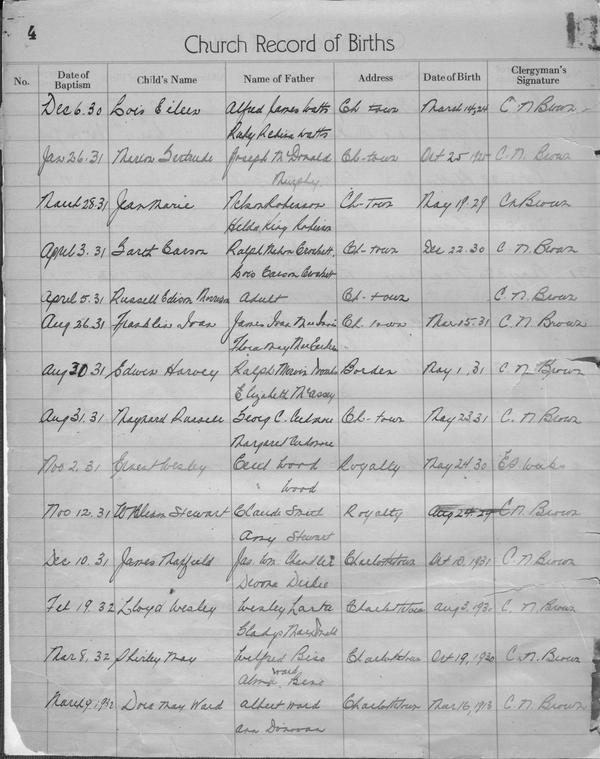 4
Church Record of Births
No. Date of Baptism Child's Name Name of Father Address Date of Birth Clergyman's Signature
Dec 6.30 Lois Eileen Alfred James Watts Ch-town March 14,24 C. N. Brown
Watts
Jan 26.31 Marion Gertrude Joseph McDonald Ch-town Oct 25 C. N. Brown
Murphy
March 28.31 Jean Marie Nelson Robinson Ch-Town May 19.29 C N Brown
Hilda King Robinson
April 3.31 Garth Carson Ralph Nelson Crockett Ch-town Dec 22.30 C. N. Brown
Lois Carson Crockett
April 5.31 Russell Edison Morrison Adult Ch-town C. N. Brown
Aug 26.31 Franklin Ivan James Ivan Ch. town Mar 15.31 C. N. Brown
Flora May
Aug 30 31 Edwin Harvey Ralph Borden May 1, 31 C. N. Brown
Elizabeth
Aug 31.31 Maynard Russell Georg C. Ch-town May 23 31 C. N. Brown
Margaret
Nov 2.31 Ernest Wesley Cecil Wood Royalty May 24.30 Weeks
" Wood
Nov 12.31 William Stewart Claude Royalty Aug 24.29 C N. Brown
Amy Stewart
Dec 10.31 James Jas. Wm. Chandler Charlottetown Oct 10, 1931 C. N. Brown
Feb 19.32 Lloyd Wesley Wesley Charlottetown Aug 3, 1930 C. N. Brown
Gladys
Mar 8, 32 Shirley May Wilfred Charlottetown Oct 19, 1930 C. N. Brown
Ward
March 9, 1932 Dora May Ward Albert Ward Charlottetown Mar 16, 1913 C. N. Brown
Ann Donovan